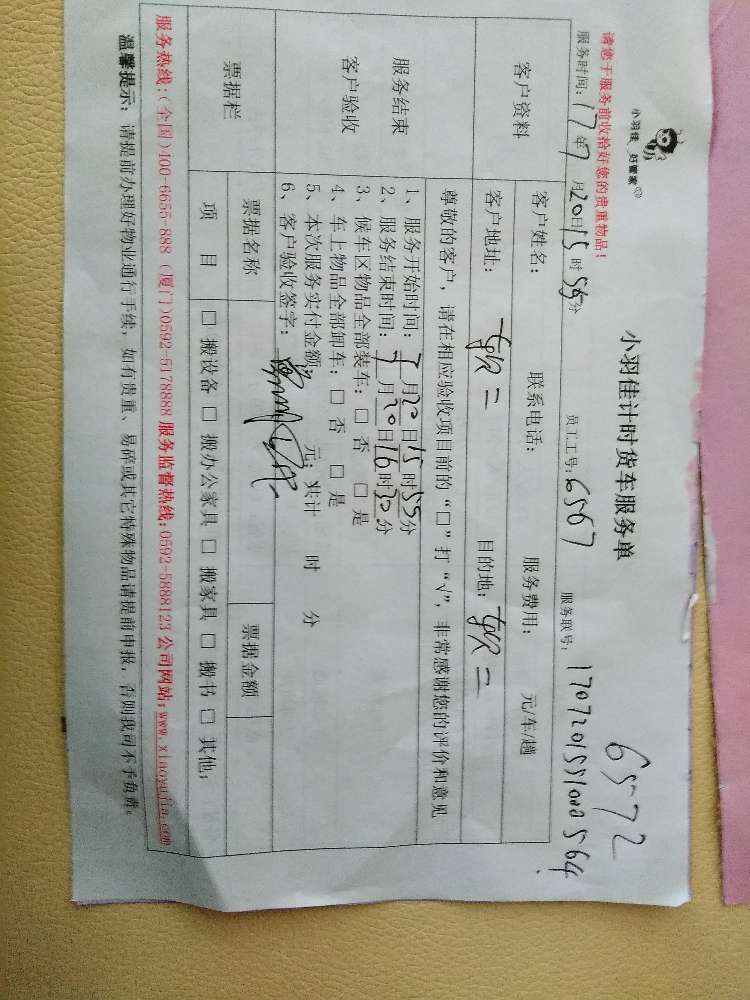 小羽佳 好管家
小羽佳计时货车服务单
6572
请您于服务前收拾好您的贵重物品！
服务时间：17年7月20日15时55分 员工工号：6567 服务联号：
客户资料
客户姓名： 联系电话： 服务费用： 元/车/趟
客户地址： 目的地：
服务结束
客户验收
尊敬的客户，请在相应验收项目前的“□”打“√”，非常感谢您的评价和意见
1、服务开始时间：7月20日15时55分
2、服务结束时间：7月20日16时30分
3、候车区物品全部装车：□ 否 □ 是
4、车上物品全部卸车：□ 否 □ 是
5、本次服务实付金额： 元；共计 时 分
6、客户验收签字：
票据栏
票据名称 票据金额
项 目 □ 搬设备 □ 搬办公家具 □ 搬家具 □ 搬书 □ 其他：
服务热线：(全国)400-6655-888 (厦门)0592-5178888 服务监督热线：0592-5888123 公司网站：www.xiaoyujia.com
温馨提示：请提前办理好物业通行手续，如有贵重、易碎或其它特殊物品请提前申报，否则我司不予负责。